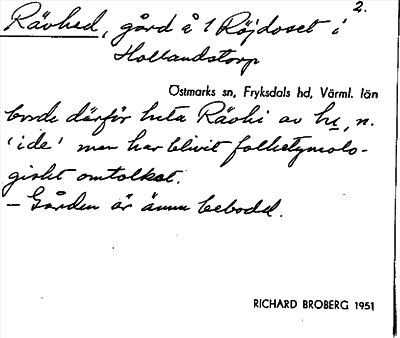 2.
Rävhed, gård å 1 Röjdoset i
Hollandstorp
Östmarks sn, Fryksdals hd, Värml. län
borde därför heta Rävhi av hi, n.
'ide' men har blivit folketymolo-
giskt omtolkat.
– Gården är ännu bebodd.
RICHARD BROBERG 1951